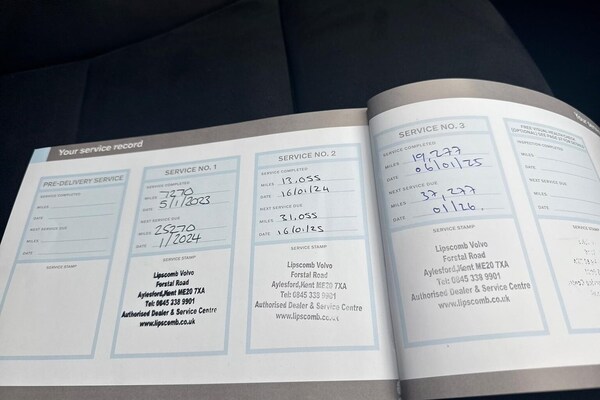 Your service record
PRE-DELIVERY SERVICE
SERVICE COMPLETED
MILES
DATE
NEXT SERVICE DUE
MILES
DATE
SERVICE STAMP
SERVICE NO. 1
SERVICE COMPLETED
MILES 7270
DATE 5/1/2023
NEXT SERVICE DUE
MILES 25270
DATE 1/2024
SERVICE STAMP
Lipscomb Volvo
Forstal Road
Aylesford,Kent ME20 7XA
Tel: 0845 338 9901
Authorised Dealer & Service Centre
www.lipscomb.co.uk
SERVICE NO. 2
SERVICE COMPLETED
MILES 13,055
DATE 16/01/24
NEXT SERVICE DUE
MILES 31,055
DATE 16/01/25
SERVICE STAMP
Lipscomb Volvo
Forstal Road
Aylesford,Kent ME20 7XA
Tel: 0845 338 9901
Authorised Dealer & Service Centre
www.lipscomb.co.uk
SERVICE NO. 3
SERVICE COMPLETED
MILES 19,277
DATE 06/01/25
NEXT SERVICE DUE
MILES 37,277
DATE 01/26.
SERVICE STAMP
Lipscomb Volvo
Forstal Road
Aylesford,Kent ME20 7XA
Tel: 0845 338 9901
Authorised Dealer & Service Centre
www.lipscomb.co.uk
Your
MILES
DATE
NEXT SERVICE DUE
MILES
DATE
SERVICE STAMP